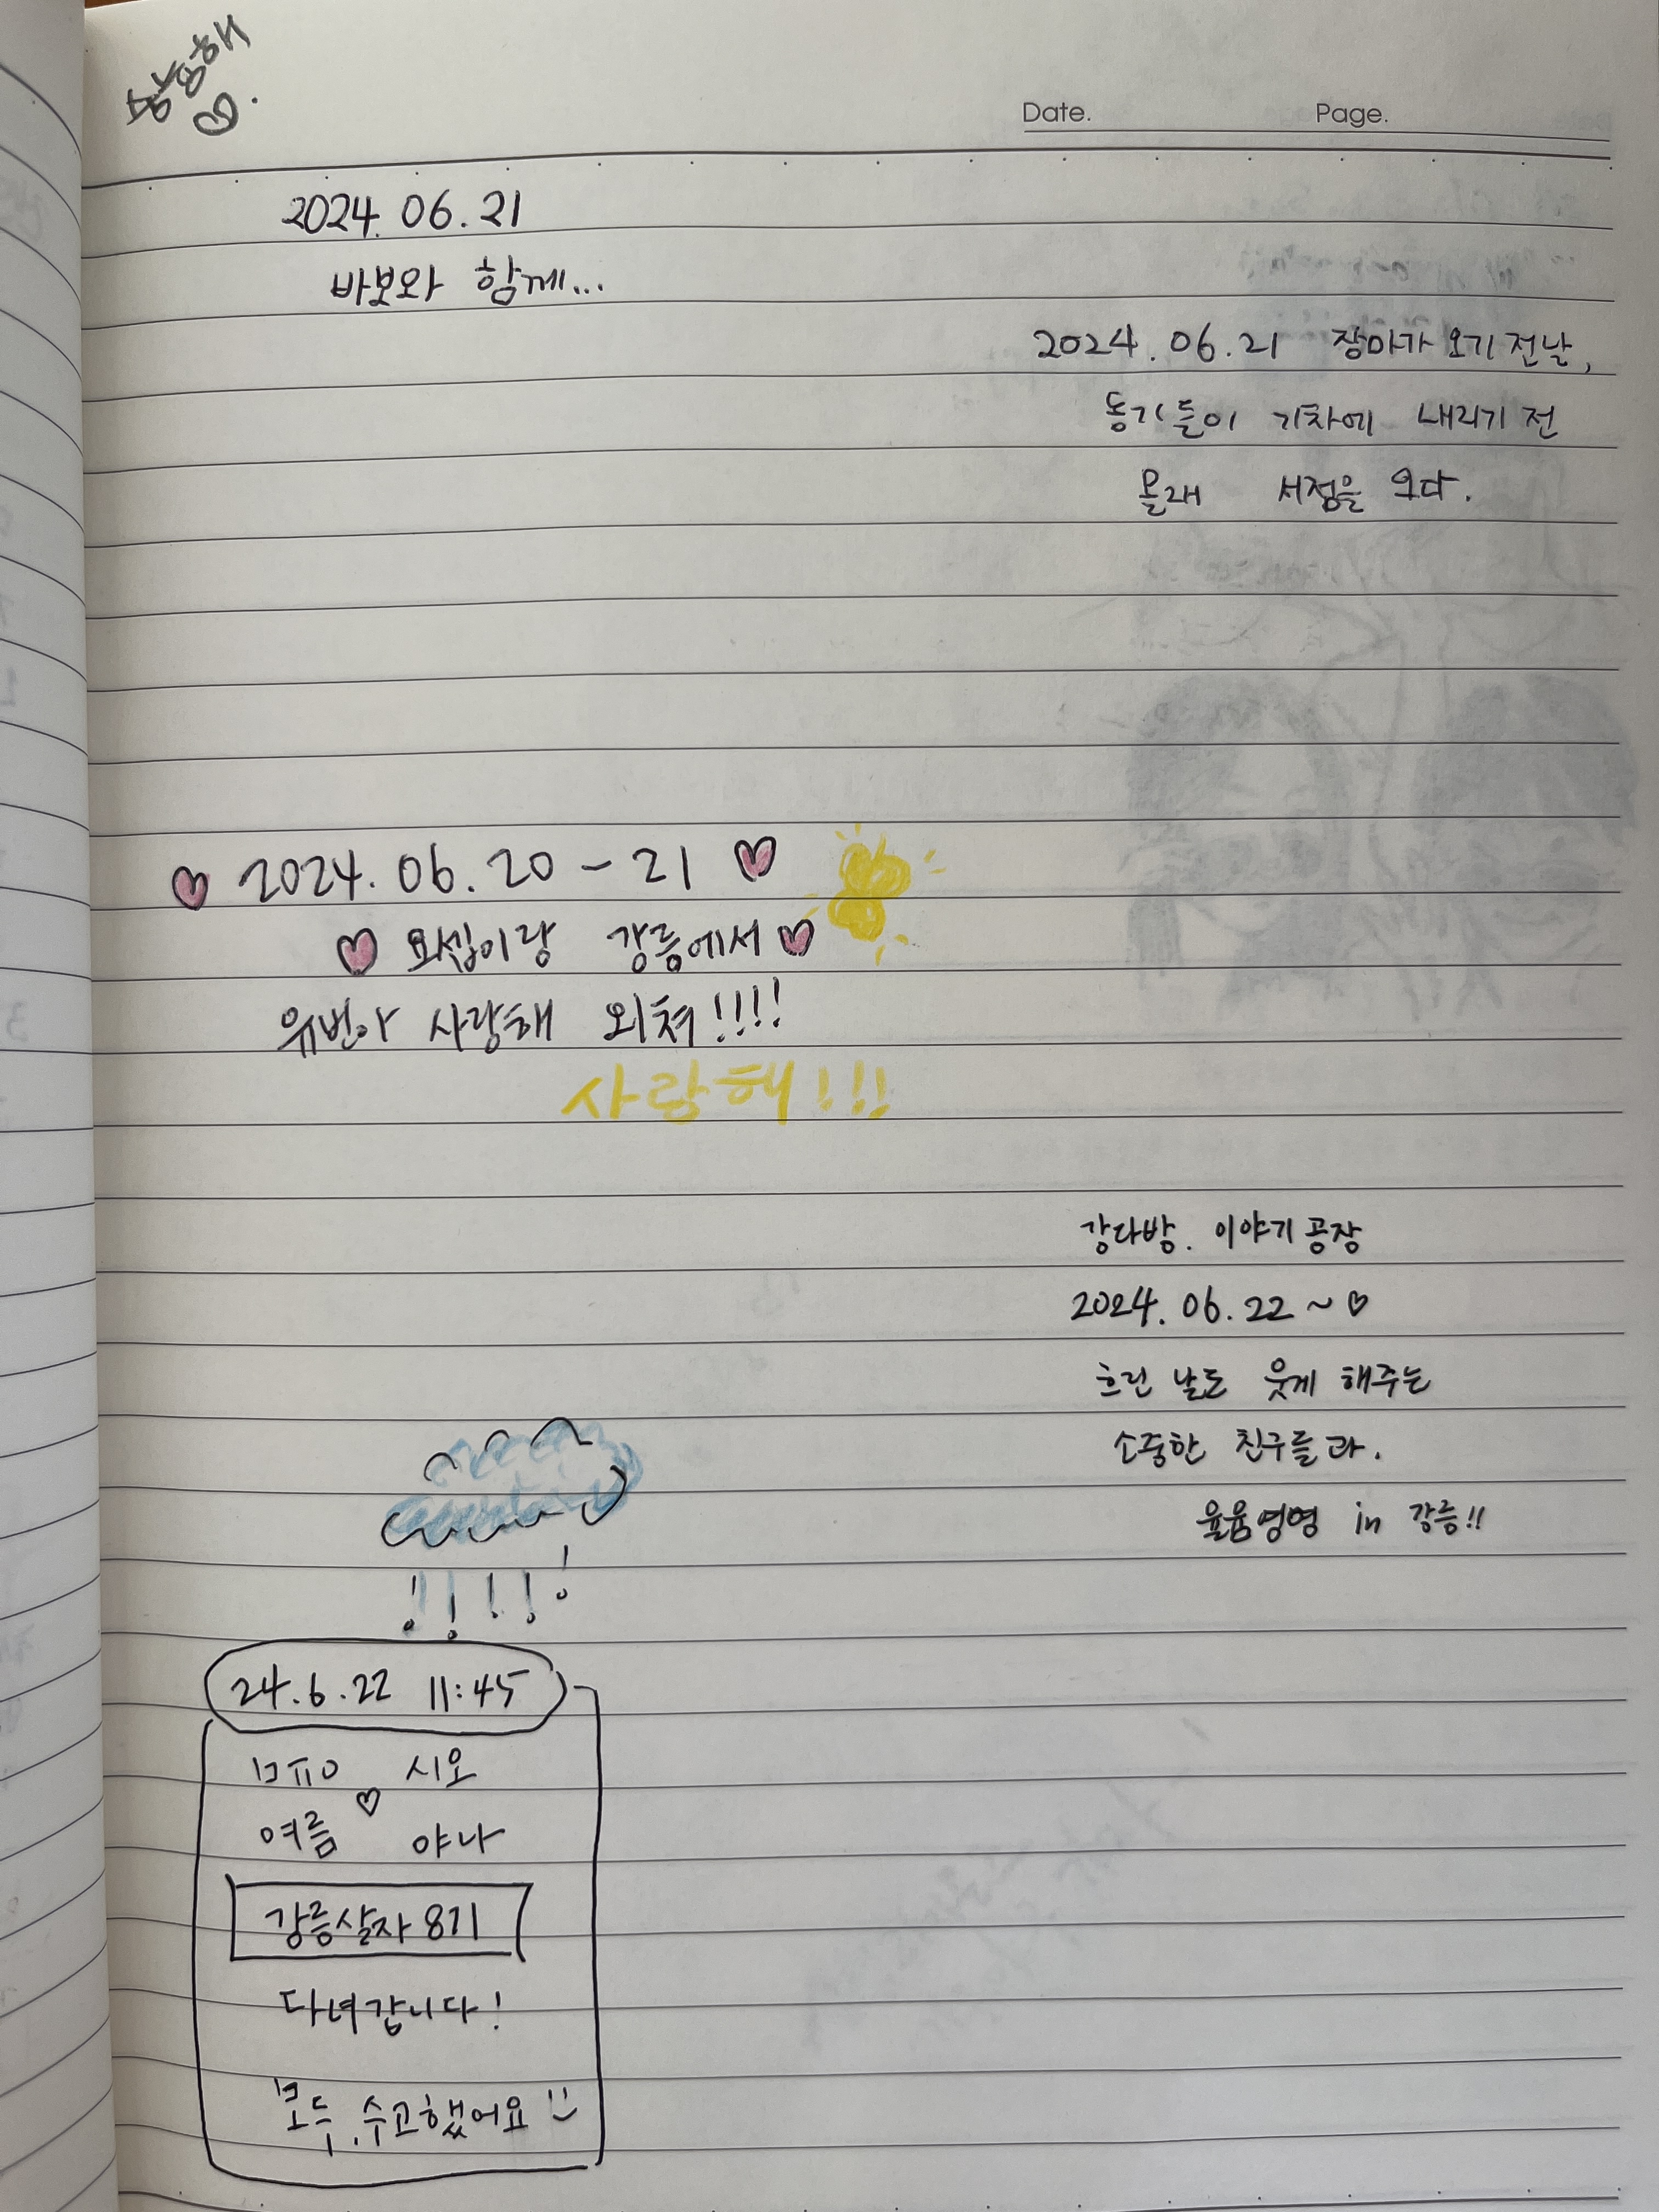 Date. Page.
2024. 06. 21
바보와 함께...
2024. 06. 21 장마가 오기 전날,
동기들이 기차에 내리기 전
몰래 서점을 오다.
2024. 06. 20 - 21
요셉이랑 강릉에서
유빈아 사랑해 외쳐!!!!
사랑해!!!
강다방. 이야기공장
2024. 06. 22 ~
흐린 날도 웃게 해주는
소중한 친구들과.
in 강릉!!
24. 6. 22 11:45
시오
여름 야나
강릉살자 8기
다녀갑니다!
모두, 수고했어요